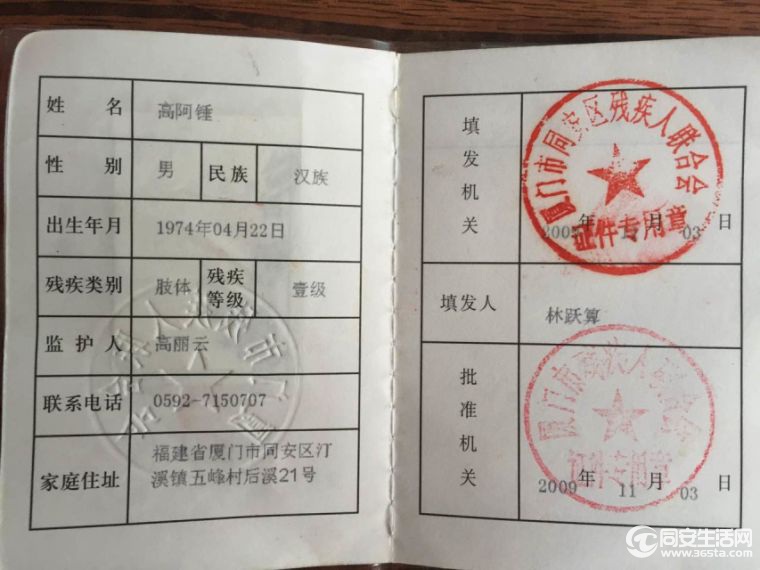 姓 名 高阿锤
性 别 男 民族 汉族
出生年月 1974年04月22日
残疾类别 肢体 残疾等级 壹级
监 护 人 高丽云
联系电话 0592-7150707
家庭住址 福建省厦门市同安区汀
溪镇五峰村后溪21号
填发机关
厦门市同安区残疾人联合会
证件专用章
年 月 03 日
填发人 林跃算
批准机关
厦门市残疾人联合会
证件专用章
2009 年 11 月 03 日
同安生活网
www.365ta.com